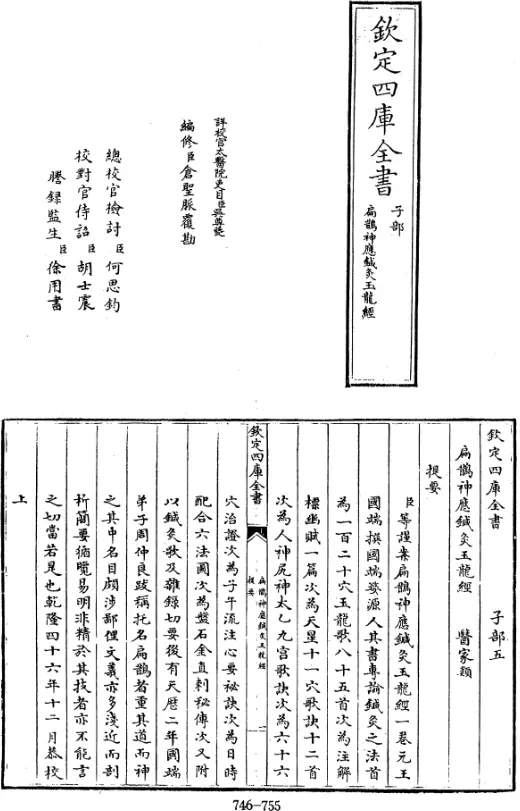 欽定四庫全書
子部
扁鵲神應鍼灸玉龍經
詳校官太醫院吏目臣
編修臣倉聖脈覆勘
總校官檢討臣何思鈞
校對官侍詔臣胡士震
謄錄監生臣徐用書
欽定四庫全書 子部五
扁鵲神應鍼灸玉龍經 醫家類
提要
臣等謹案扁鵲神應鍼灸玉龍經一卷元王
國端撰國端婺源人其書專論鍼灸之法首
為一百二十穴玉龍歌八十五首次為注解
標幽賦一篇次為天星十一穴歌訣十二首
次為人神尻神太乙九宮歌訣次為六十六
欽定四庫全書
扁鵲神應鍼灸玉龍經
提要
一
穴治證次為子午流注心要秘訣次為日時
配合六法圖次為盤石金直刺秘傳次又附
以鍼灸歌及雜錄切要後有天厯二年國端
弟子周仲良跋稱托名扁鵲者重其道而神
之其中名目頗涉鄙俚文義亦多淺近而剖
析簡要循覽易明非精於其技者亦不能言
之切當若是也乾隆四十六年十二月恭校
上
746-755